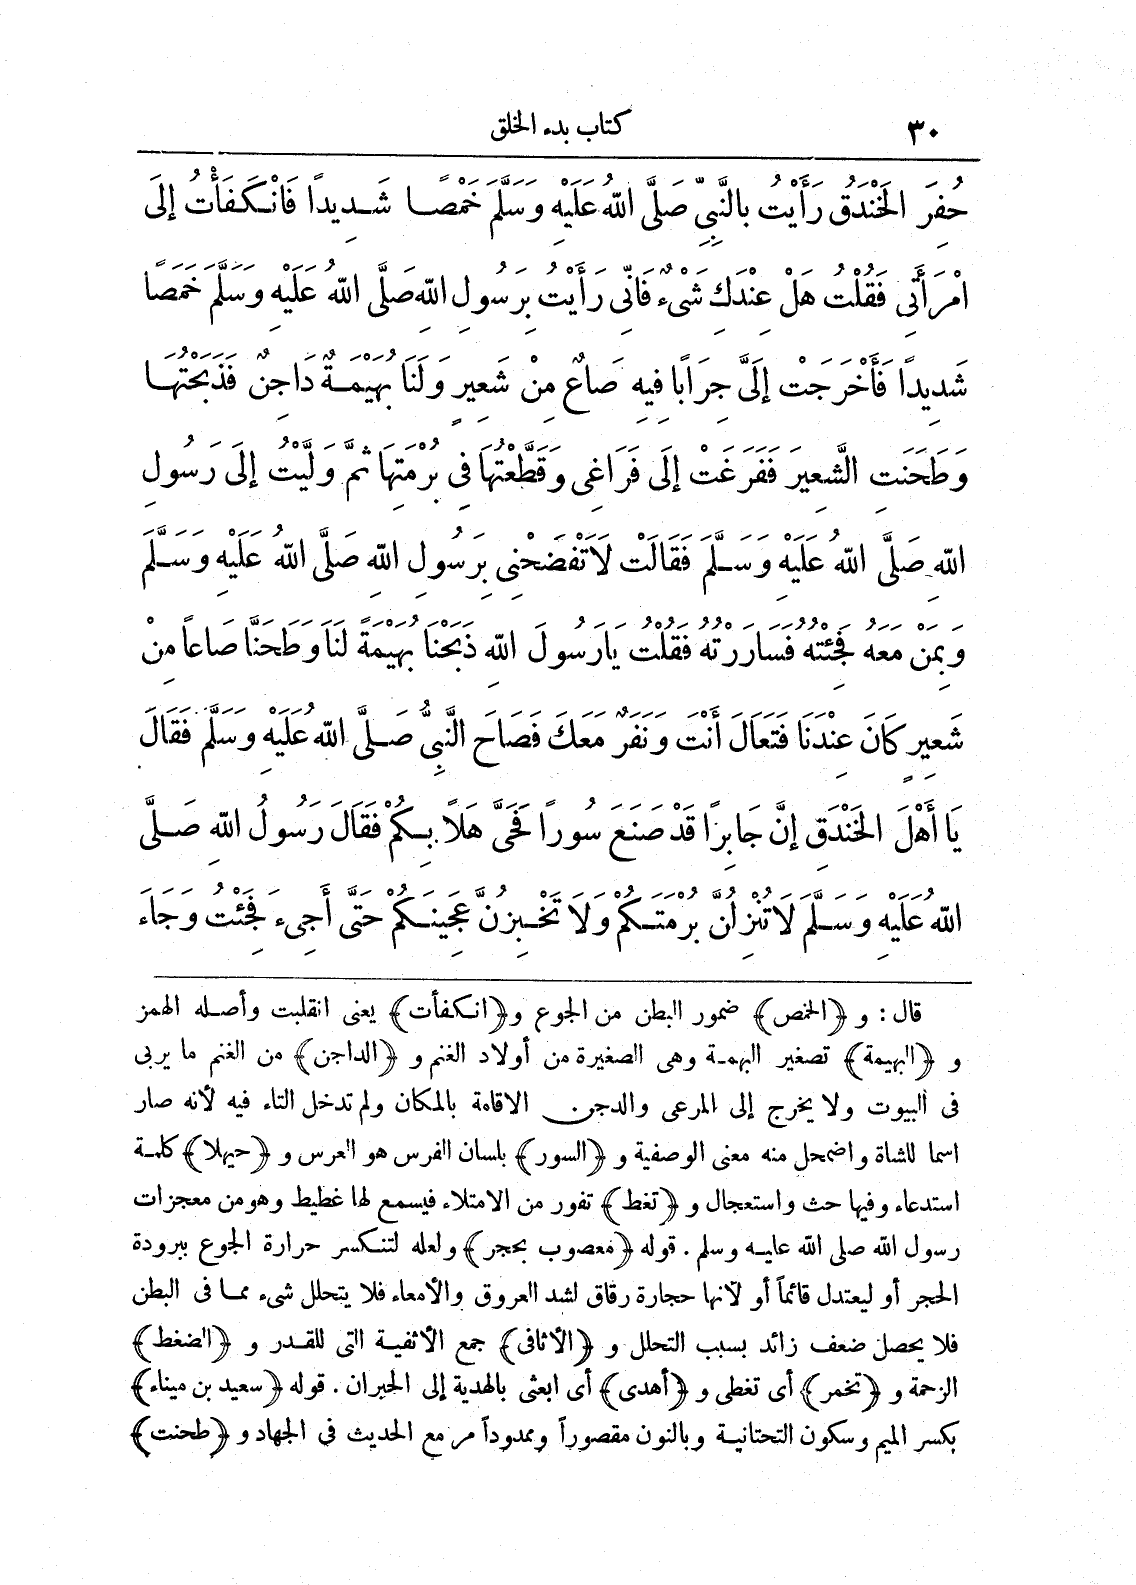 ٣٠ كتاب بدء الخلق
حُفِرَ الْخَنْدَقُ رَأَيْتُ بِالنَّبِيِّ صَلَّى اللهُ عَلَيْهِ وَسَلَّمَ خَمَصًا شَدِيدًا فَانْكَفَأْتُ إِلَى
امْرَأَتِي فَقُلْتُ هَلْ عِنْدَكِ شَىْءٌ فَإِنِّي رَأَيْتُ بِرَسُولِ اللهِ صَلَّى اللهُ عَلَيْهِ وَسَلَّمَ خَمَصًا
شَدِيدًا فَأَخْرَجَتْ إِلَيَّ جِرَابًا فِيهِ صَاعٌ مِنْ شَعِيرٍ وَلَنَا بُهَيْمَةٌ دَاجِنٌ فَذَبَحْتُهَا
وَطَحَنَتِ الشَّعِيرَ فَفَرَغَتْ إِلَى فَرَاغِي وَقَطَّعْتُهَا فِي بُرْمَتِهَا ثُمَّ وَلَّيْتُ إِلَى رَسُولِ
اللهِ صَلَّى اللهُ عَلَيْهِ وَسَلَّمَ فَقَالَتْ لَا تَفْضَحْنِي بِرَسُولِ اللهِ صَلَّى اللهُ عَلَيْهِ وَسَلَّمَ
وَبِمَنْ مَعَهُ فَجِئْتُهُ فَسَارَرْتُهُ فَقُلْتُ يَا رَسُولَ اللهِ ذَبَحْنَا بُهَيْمَةً لَنَا وَطَحَنَّا صَاعًا مِنْ
شَعِيرٍ كَانَ عِنْدَنَا فَتَعَالَ أَنْتَ وَنَفَرٌ مَعَكَ فَصَاحَ النَّبِيُّ صَلَّى اللهُ عَلَيْهِ وَسَلَّمَ فَقَالَ
يَا أَهْلَ الْخَنْدَقِ إِنَّ جَابِرًا قَدْ صَنَعَ سُورًا فَحَيَّ هَلًا بِكُمْ فَقَالَ رَسُولُ اللهِ صَلَّى
اللهُ عَلَيْهِ وَسَلَّمَ لَا تُنْزِلُنَّ بُرْمَتَكُمْ وَلَا تَخْبِزُنَّ عَجِينَكُمْ حَتَّى أَجِيءَ فَجِئْتُ وَجَاءَ
قال : و ﴿الخمص﴾ ضمور البطن من الجوع و﴿انكفأت﴾ يعنى انقلبت وأصله الهمز
و ﴿البهيمة﴾ تصغير البهمة وهى الصغيرة من أولاد الغنم و ﴿الداجن﴾ من الغنم ما يربى
فى البيوت ولا يخرج إلى المرعى والدجن الاقامة بالمكان ولم تدخل التاء فيه لأنه صار
اسما للشاة واضمحل منه معنى الوصفية و ﴿السور﴾ بلسان الفرس هو العرس و ﴿حيهلا﴾ كلمة
استدعاء وفيها حث واستعجال و ﴿تغط﴾ تفور من الامتلاء فيسمع لها غطيط وهو من معجزات
رسول الله صلى الله عليه وسلم . قوله ﴿معصوب بحجر﴾ ولعله لتنكسر حرارة الجوع ببرودة
الحجر أو ليعتدل قائماً أو لأنها حجارة رقاق لشد العروق والأمعاء فلا يتحلل شىء مما فى البطن
فلا يحصل ضعف زائد بسبب التحلل و ﴿الأثافى﴾ جمع الأثفية التى للقدر و ﴿الضغط﴾
الزحمة و ﴿تخمر﴾ أى تغطى و ﴿أهدى﴾ أى ابعثى بالهدية إلى الجيران . قوله ﴿سعيد بن ميناء﴾
بكسر الميم وسكون التحتانية وبالنون مقصوراً وممدوداً مر مع الحديث فى الجهاد و ﴿طحنت﴾